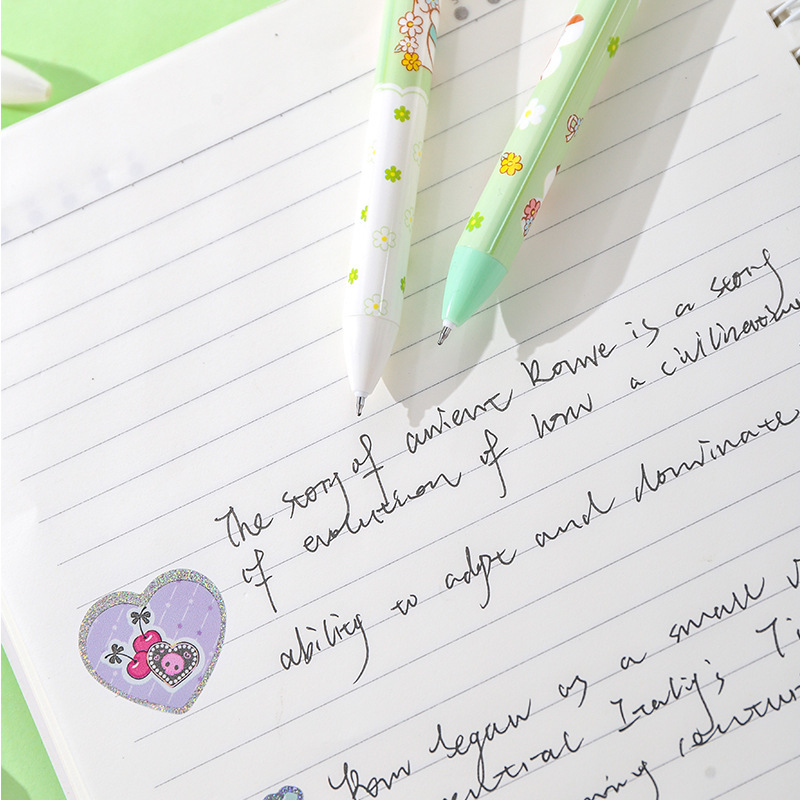 The story of ancient Rome is a story
of evolution of how a civilization
ability to adapt and dominate
Rom began as a small
Italy's